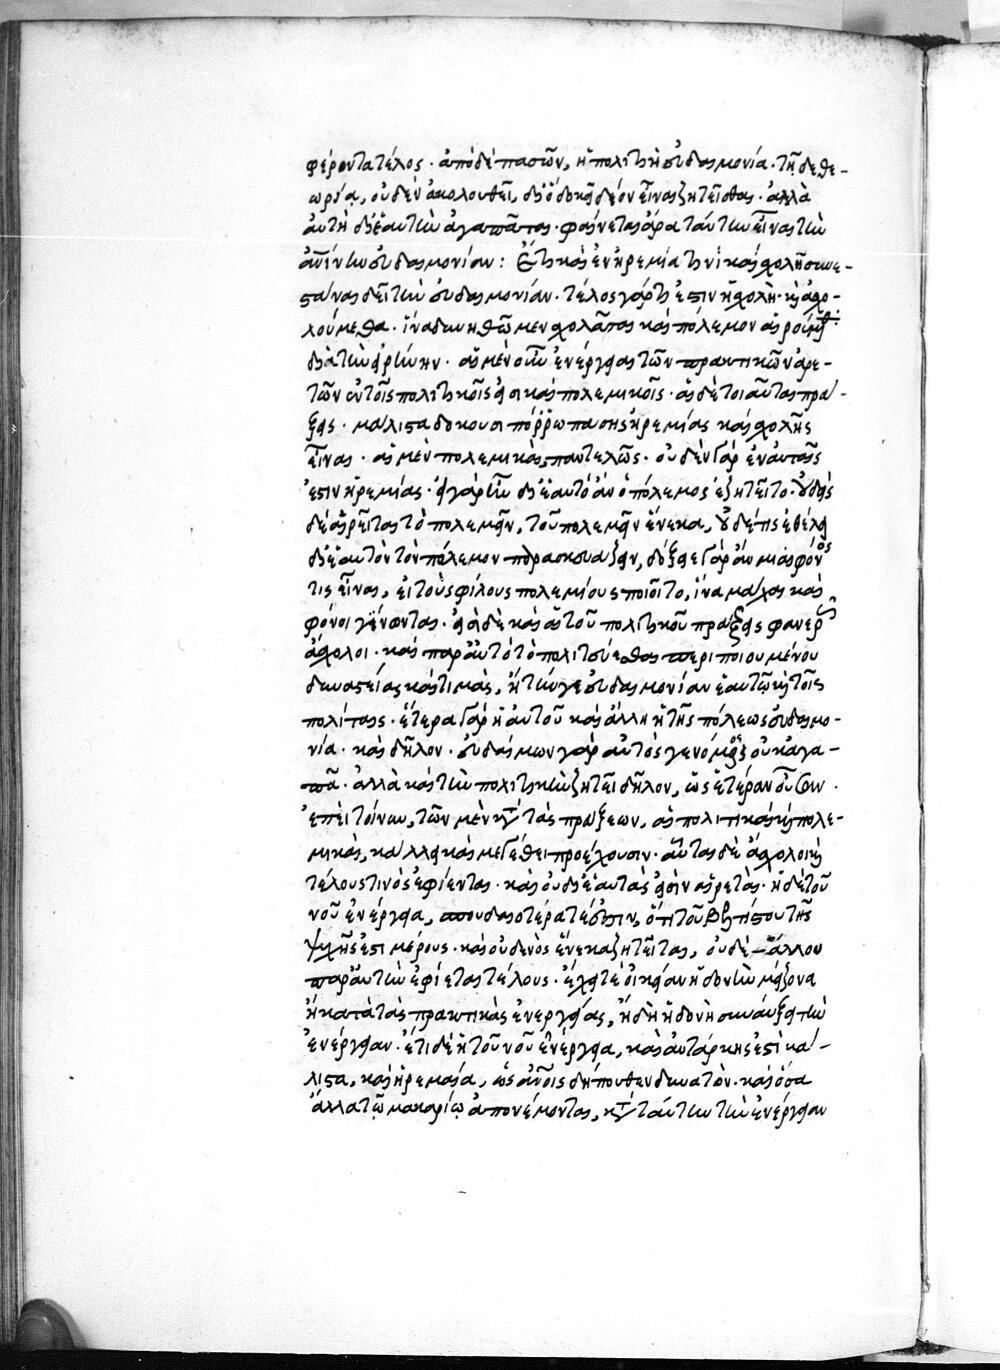 φέροντα τέλος· ἀπὸ δὲ πασῶν, ἡ πολιτικὴ εὐδαιμονία· τῇ δὲ θε-
ωρίᾳ, οὐδὲν ἀκολουθεῖ, δι' ὃ δοκεῖ δέον εἶναι ζητεῖσθαι· ἀλλὰ
αὐτὴ δι' ἑαυτὴν ἀγαπᾶται· φαίνεται ἄρα ταύτην εἶναι τὴν
εὐδαιμονίαν: Ἔτι καὶ ἐν ἠρεμίᾳ τινὶ καὶ σχολῇ συνε-
στάναι δεῖ τὴν εὐδαιμονίαν· τέλος γάρ τι ἐστὶν ἡ σχολή· καὶ ἀσχο-
λούμεθα· ἵνα δυνηθῶμεν σχολάσαι καὶ πόλεμον αἱρούμεθα·
διὰ τὴν εἰρήνην· αἱ μὲν οὖν ἐνέργειαι τῶν πρακτικῶν ἀρε-
τῶν ἐν τοῖς πολιτικοῖς εἰσι καὶ πολεμικοῖς· αἱ δὲ τοιαῦται πρά-
ξεις· μάλιστα δοκοῦσι πόρρω πάσης ἠρεμίας καὶ σχολῆς
εἶναι· αἱ μὲν πολεμικαὶ παντελῶς· οὐδὲν γὰρ ἐν αὐταῖς
ἐστιν ἠρεμίας· εἰ γὰρ ἦν δι' ἑαυτὸ ἂν ὁ πόλεμος ἐζητεῖτο· οὐδεὶς
δὲ αἱρεῖται τὸ πολεμεῖν, τοῦ πολεμεῖν ἕνεκα, οὐδέ τις ἐθέλει
δι' ἑαυτὸν τὸν πόλεμον παρασκευάζειν, δόξειε γὰρ ἂν μιαιφόνος
τις εἶναι, εἰ τοὺς φίλους πολεμίους ποιοῖτο, ἵνα μάχαι καὶ
φόνοι γένωνται· εἰσὶ δὲ καὶ αἱ τοῦ πολιτικοῦ πράξεις φανερῶς
ἄσχολοι· καὶ παρ' αὐτὸ τὸ πολιτεύεσθαι περιποιουμένου
δυναστείας καὶ τιμάς, ἢ τήν γε εὐδαιμονίαν ἑαυτῷ καὶ τοῖς
πολίταις· ἑτέρα γὰρ ἡ αὐτοῦ καὶ ἄλλη ἡ τῆς πόλεως εὐδαιμο-
νία· καὶ δῆλον· εὐδαίμων γὰρ αὐτὸς γενόμενος οὐκ ἀγα-
πᾷ· ἀλλὰ καὶ τὴν πολιτικὴν ζητεῖ δῆλον, ὡς ἑτέραν οὖσαν·
ἐπεὶ τοίνυν, τῶν μὲν κατὰ τὰς πράξεων, αἱ πολιτικαὶ καὶ πολε-
μικαὶ, κάλλει καὶ μεγέθει προέχουσιν· αὗται δὲ ἄσχολοι καὶ
τέλους τινὸς ἐφίενται· καὶ οὐ δι' ἑαυτάς εἰσιν αἱρεταί· ἡ δὲ τοῦ
νοῦ ἐνέργεια, σπουδαιοτέρα τέ ἐστιν, ὅτι τοῦ βελτίστου τῆς
ψυχῆς ἐστι μέρους· καὶ οὐδενὸς ἕνεκα ζητεῖται, οὐδὲ ἄλλου
παρ' αὐτὴν ἐφίεται τέλους· ἔχει τε οἰκείαν ἡδονὴν μείζονα
ἢ κατὰ τὰς πρακτικὰς ἐνεργείας, ἡ δὴ ἡδονὴ συναύξει τὴν
ἐνέργειαν· ἔτι δὲ ἡ τοῦ νοῦ ἐνέργεια, καὶ αὐτάρκης ἐστὶ κά-
λιστα, καὶ ἠρεμαία, ὡς ἀνθρώποις δήπουθεν δυνατὸν· καὶ ὅσα
ἄλλα τῷ μακαρίῳ ἀπονέμονται, κατὰ ταύτην τὴν ἐνέργειαν